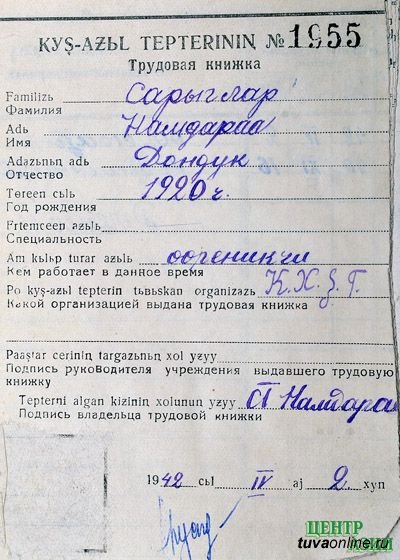 KYŞ-AƵЬL TEPTERINIꞐ № 1955
Трудовая книжка
Familizь Сарыглар
Фамилия
Adь Намдараа
Имя
Adazьnьꞑ adь Дондук
Отчество
Tɵreen cьlь 1920 г.
Год рождения
Ertemceen aƶьlь
Специальность
Am kьlьp turar aƶьlь ɵɵреникчи
Кем работает в данное время
Po kyş-aƶьl tepterin tьвьskan organizazь К.Х.Ş.Т.
Какой организацией выдана трудовая книжка
Paaştar ceriniꞑ targazьnьꞑ xol yƶyy
Подпись руководителя учреждения выдавшего трудовую
книжку
Tepterni algan kiziniꞑ xolunun yƶyy СТ Намдараа
Подпись владельца трудовой книжки
1942 сьl IV aj 2 хуn
ЦЕНТР АЗИИ
tuvaonline.ru